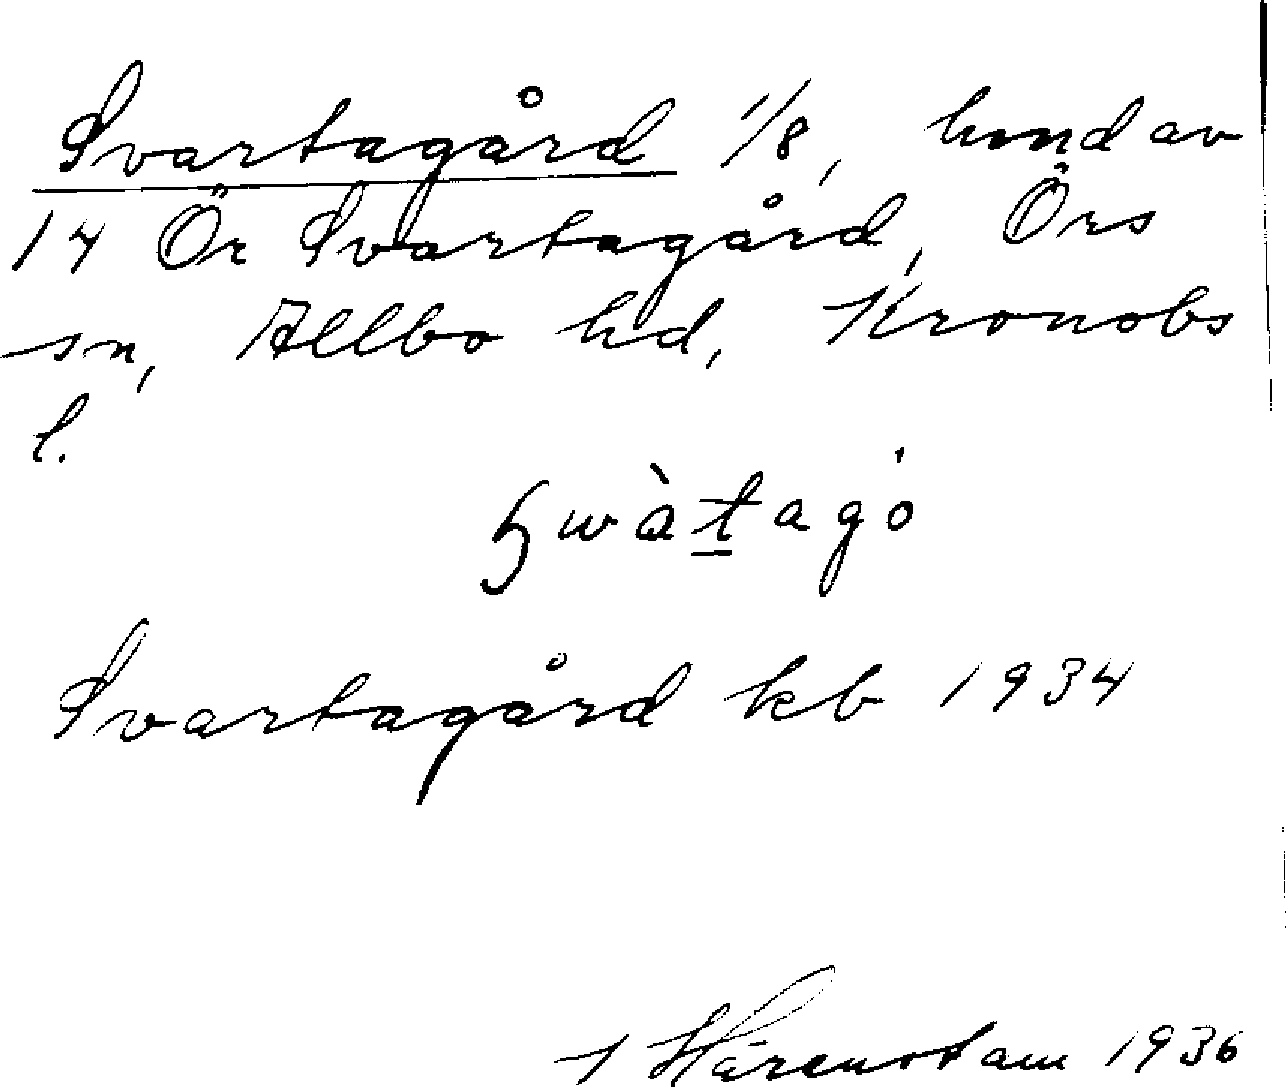 Svartagård 1/8, hmd av
14 Ör Svartagård, Örs
sn, Allbo hd, Kronobs
l.
swàtagó
Svartagård kb 1934
Härenstam 1936